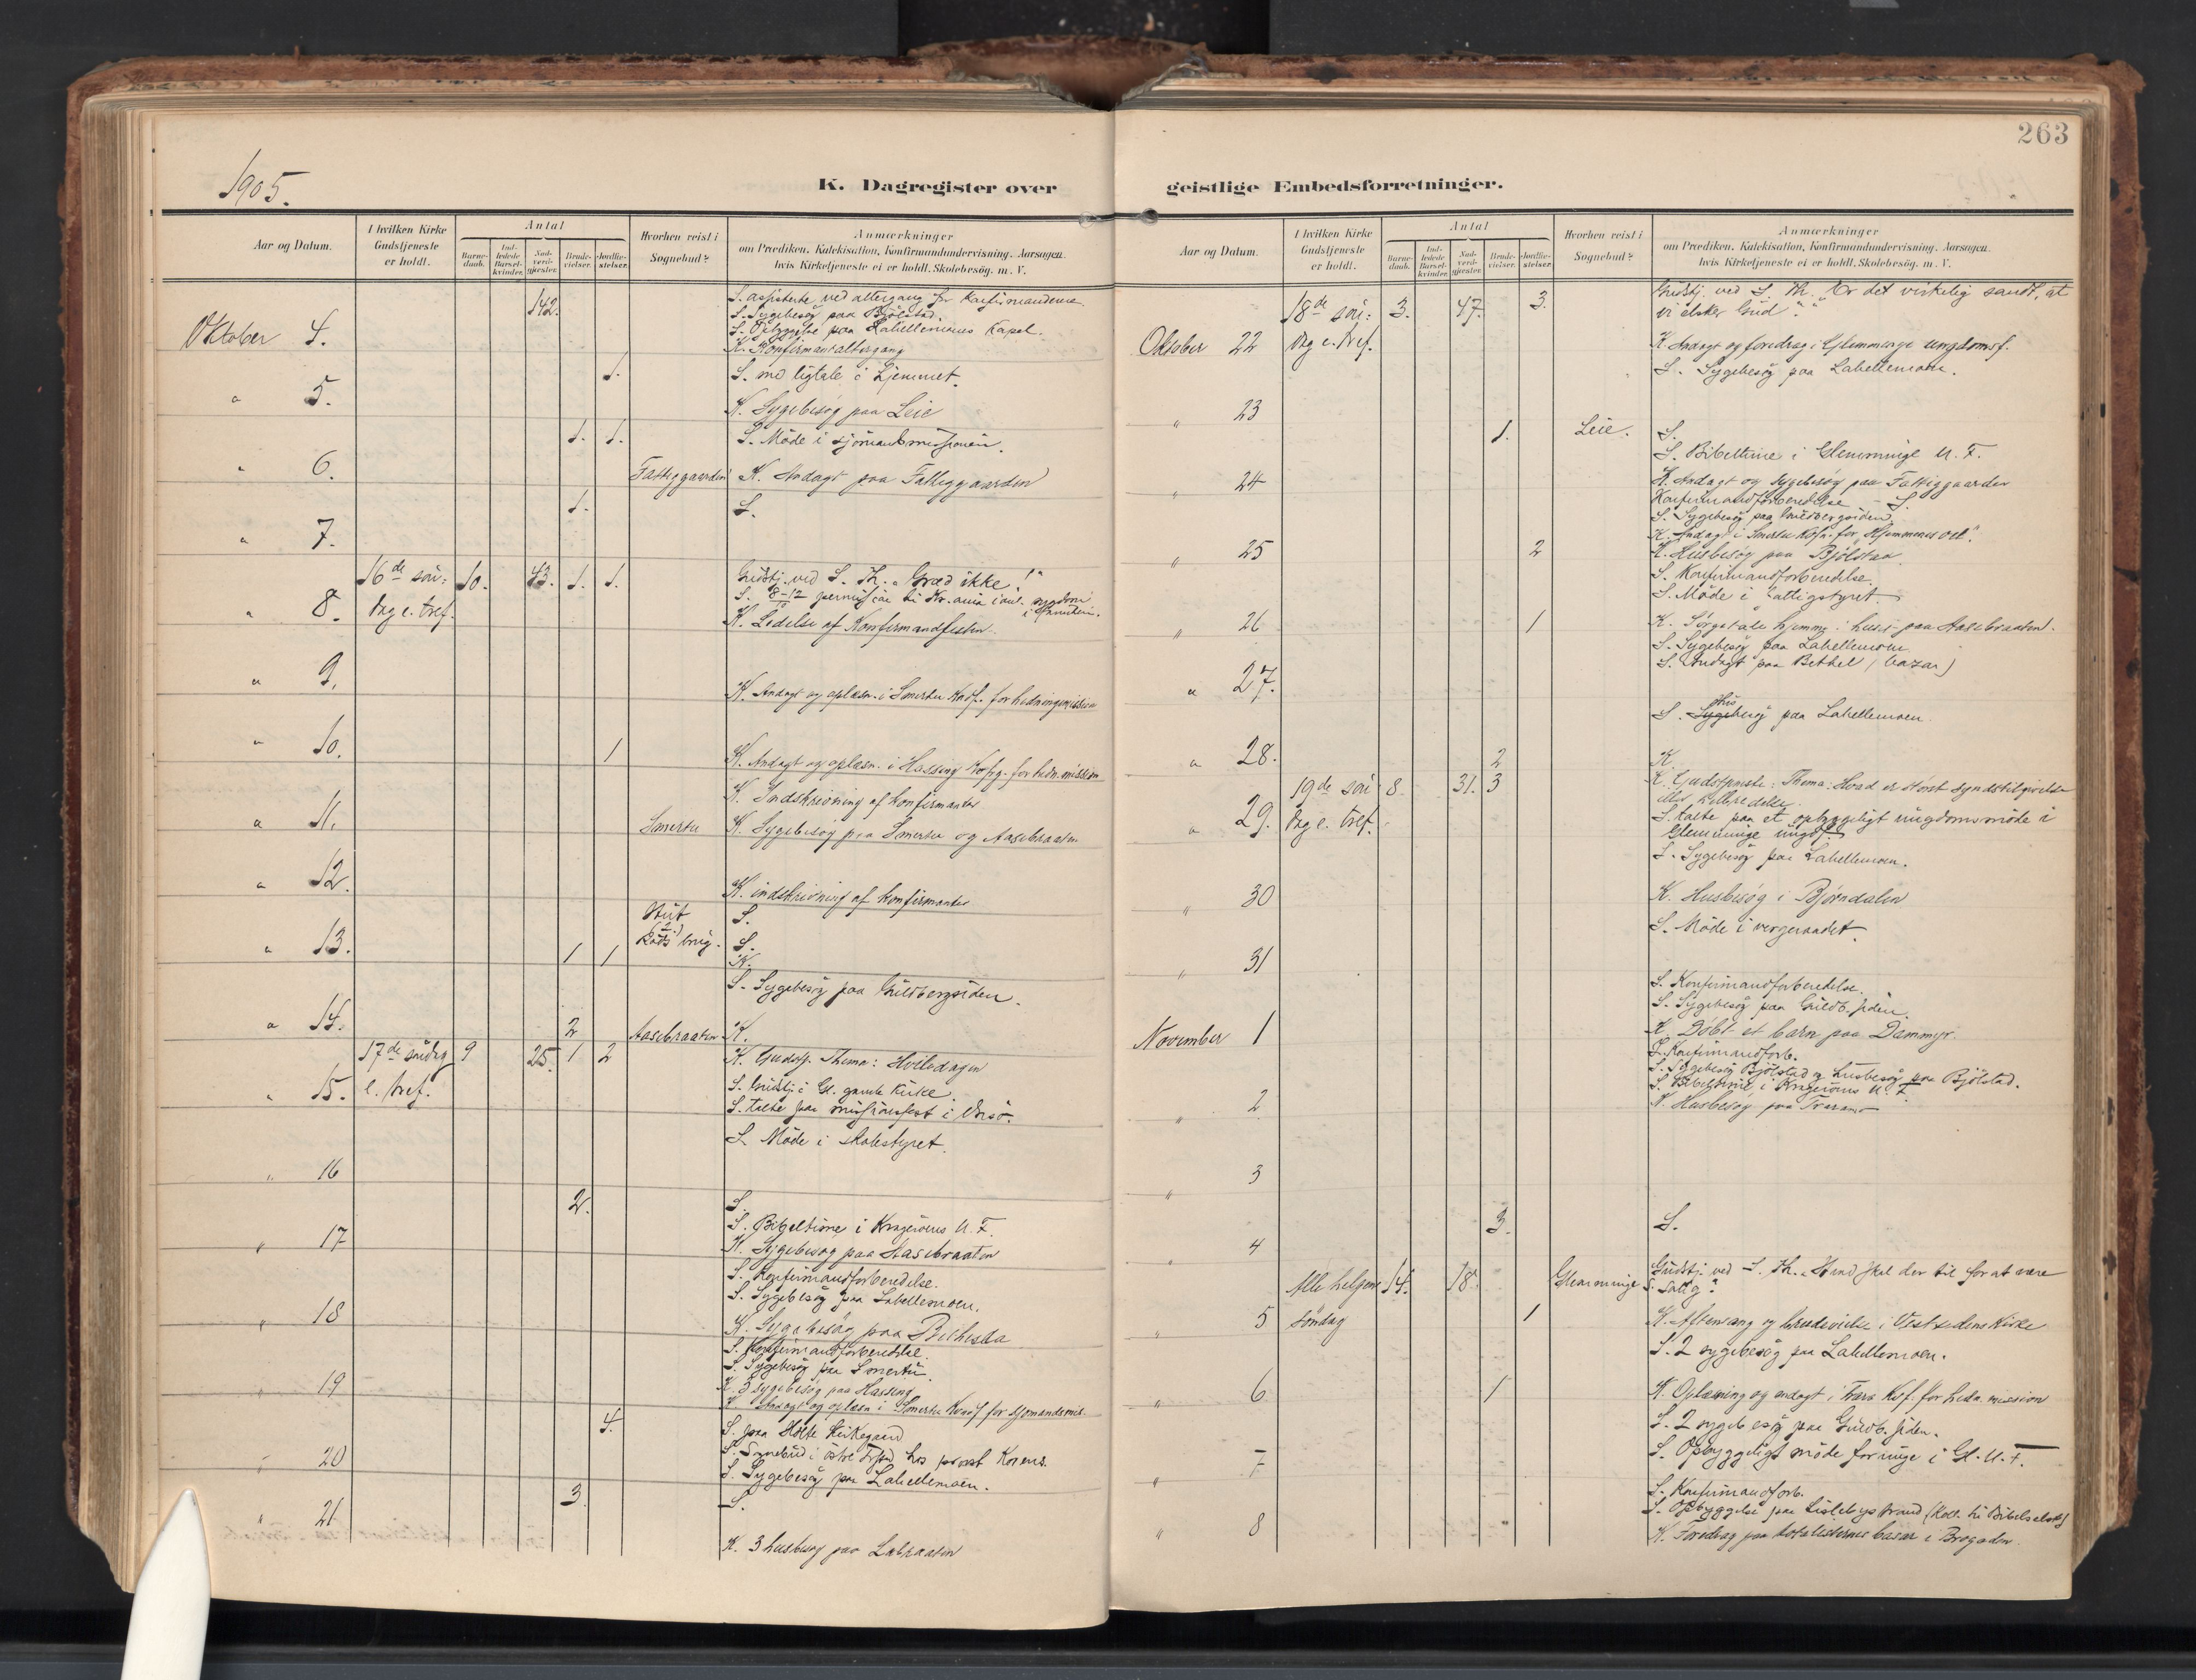 263
1905.
K. Dagregister over geistlige Embedsforretninger.
Aar og Datum.
I hvilken Kirke Gudstjeneste er holdt.
Antal
Barnedaab.
Indledede Barselkvinder.
Nadverdgjester.
Brudevielser.
Jordfæstelser.
Hvorhen reist i Sognebud?
Anmærkninger
om Prædiken, Katekisation, Konfirmandundervisning, Aarsagen,
hvis Kirketjeneste ei er holdt, Skolebesög, m. V.
142. S. assisterte ved altergang for Konfirmanderne.
S. Sygebesög paa Bjölstad.
Oktober 4. S. Opbyggelse paa Lahellemoens Kapel.
K. Konfirmantaltergang
1. S. med ligtale i Hjemmet.
" 5.
K. Sygebesøg paa Leie
1. 1. S. Möde i sjömandsmissionen.
" 6. Fattiggaarden K. Andagt paa Fattiggaarden
1. S.
" 7.
16de sön: 10. 43. 1. 1. Gudstj. ved S. Th. "Græd ikke!"
" 8. dag e. tref.
K. Ledelse af Konfirmandfesten
" 9.
K. Andagt og oplæsn. i Smertu Kvdf. for hedningemission
" 10. 1
K. Andagt og oplæsn. i Hassing Kvfg. for hedn. mission
K. Indskrivning af konfirmanter
" 11. Smertu K. Sygebesøg paa Smertu og Aasebraaten
" 12.
K. indskrivning af konfirmanter
S.
" 13. 1 1 S.
K.
S. Sygebesög paa Guldbergsiden.
" 14. 2 Aasebraaten K.
17de söndag 9 25. 1 2 K. Gudstj. Thema: Hviledagen
" 15. e. tref. S. Gudstj. i Gl. gamle Kirke.
S. talte paa missionsfest i Onsö.
S. Möde i skolestyret.
" 16
2. S.
S. Bibeltime i Kragerøens U. F.
" 17 K. Sygebesøg paa Aasebraaten
S. Konfirmandforberedelse.
S. Sygebesög paa Lahellemoen.
" 18
K. Sygebesøg paa Bethesda
S. Konfirmandforberedelse.
S. Sygebesög paa Smertu.
" 19 K. 3 sygebesøg paa Hassing
K. Andagt og oplæsn. i Smertu Kvdf for sjømandsmis.
4. S. paa Holte Kirkegaard
" 20
S. Sygebesög paa Lahellemoen.
3. S.
" 21
K. 3 husbesøg paa Labraaten
Aar og Datum.
I hvilken Kirke Gudstjeneste er holdt.
Antal
Barnedaab.
Indledede Barselkvinder.
Nadverdgjester.
Brudevielser.
Jordfæstelser.
Hvorhen reist i Sognebud?
Anmærkninger
om Prædiken, Katekisation, Konfirmandundervisning, Aarsagen,
hvis Kirketjeneste ei er holdt, Skolebesög, m. V.
18de sön: 3. 47. 3. Gudstj. ved S. Th. "Er det virkelig sandt, at
vi elsker Gud".
Oktober 22 dag e. tref. K. Andagt og foredrag i Glemminge ungdomsf.
S. Sygebesög paa Lahellemoen.
" 23
1. Leie. S.
S. Bibeltime i Glemminge U. F.
" 24 K. Andagt og sygebesøg paa Fattiggaarden
Konfirmandforberedelse - S.
S. Sygebesög paa Guldbergsiden.
K. Andagt i Smertu Kvfn. for "Hjemmenes vel".
" 25 2 K. Husbesøg paa Bjölstad
S. Konfirmandforberedelse.
S. Möde i fattigstyret.
" 26 1 K. Sørgetale hjemme i huset paa Aasebraaten.
S. Sygebesög paa Lahellemoen.
S. Andagt paa Bethel (bazar)
" 27.
S. Husbesög paa Lahellemoen.
" 28. 2 K.
19de sön 8 31. 3 K. Gudstjeneste: Thema: Hvad er størst syndstilgivelse
eller helbredelse.
" 29. dag e. tref. S. talte paa et opbyggeligt ungdomsmöde i
Glemminge ungdf.
S. Sygebesög paa Lahellemoen.
" 30 K. Husbesøg i Bjørndalen
S. Möde i vergeraadet.
" 31
S. Konfirmandforberedelse.
S. Sygebesög paa Guldb.siden.
November 1 K. Döbt et barn paa Dammyr.
S. Konfirmandforb.
S. Sygebesög Bjölstad og husbesög paa Bjölstad.
S. Bibeltime i Kragerøens U. F.
" 2 K. Husbesøg paa Traramo
" 3
3. S.
" 4
Alle helgens 14. 18. Glemminge Gudstj. ved S. Th. "Hvad skal der til for at være
S. salig".
" 5 Søndag 1 K. Aftensang og brudevielse i Vestsidens Kirke
S. 2 sygebesög paa Lahellemoen.
" 6 1 K. Oplæsning og andagt i Trara Kvf. for hedn. mission
S. 2 sygebesög paa Guldb.siden.
" 7 S. Opbyggeligt möde for unge i Gl. U. F.
S. Konfirmandforb.
S. Opbyggelse paa Lislebystrand (Koll. til Bibelselsk)
" 8 K. Foredrag paa totalisternes basar i Brogaden.